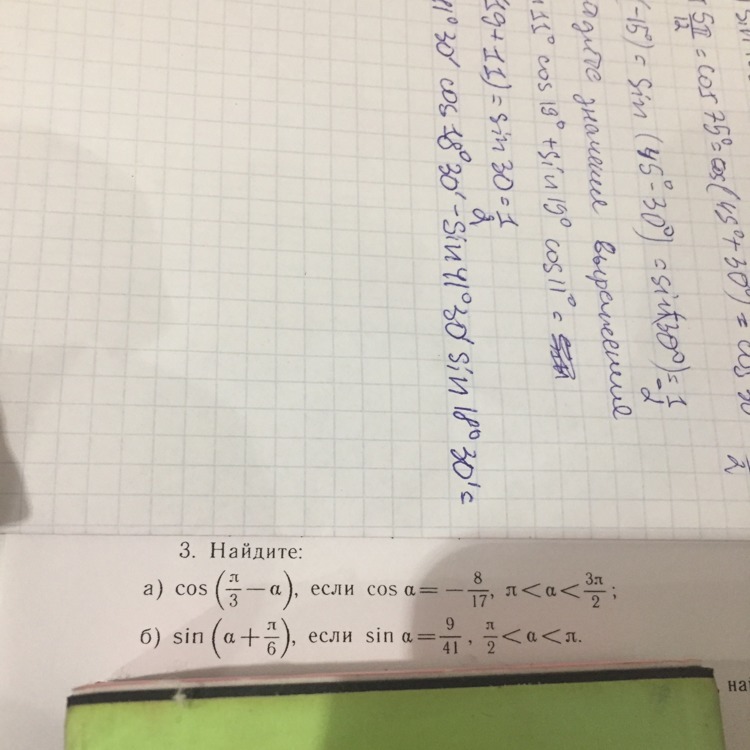 5π/12 = cos 75° = cos(45° + 30°) = cos 30
(-15°) = sin (45° - 30°) = sin(30°) = 1/2
значение выражения
11° cos 19° + sin 19° cos 11° =
19 + 11) = sin 30 = 1/2
41° 30' cos 18° 30' - sin 41° 30' sin 18° 30' =
3. Найдите:
а) cos (π/3 − α), если cos α = − 8/17, π < α < 3π/2 ;
б) sin (α + π/6), если sin α = 9/41, π/2 < α < π.